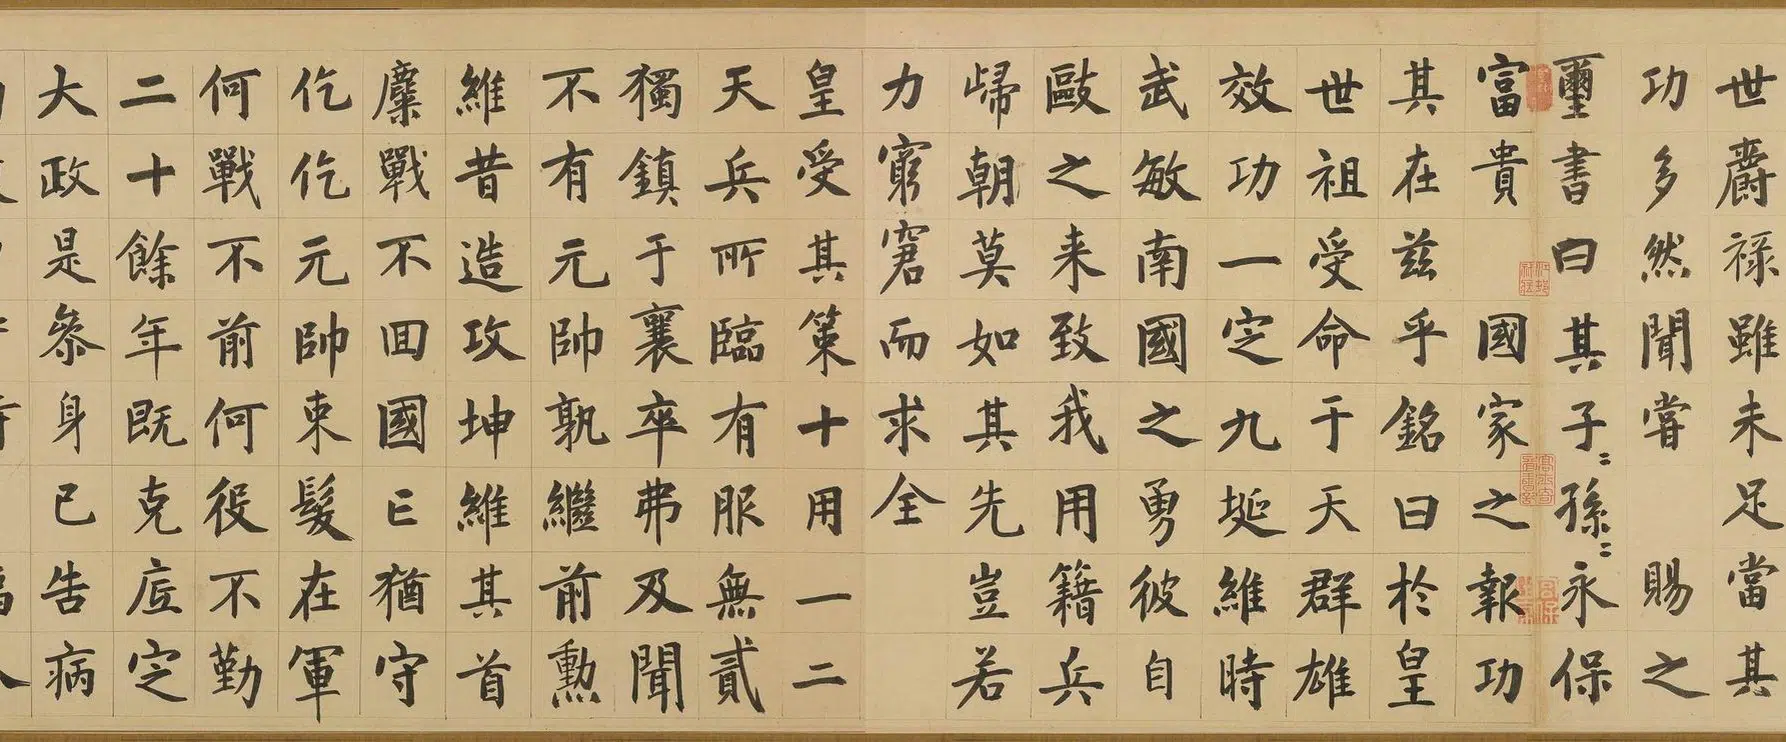 世爵祿雖未足當其
功多然聞嘗 賜之
璽書曰其子〻孫〻永保
富貴 國家之報功
其在茲乎銘曰於皇
世祖受命于天群雄
效功一定九埏維時
武敏南國之勇彼自
敺之来致我用籍兵
歸朝莫如其先豈若
力窮窘而求全
皇受其策十用一二
天兵所臨有服無貳
獨鎮于襄卒弗及聞
不有元帥孰繼前勲
維昔造攻坤維其首
麇戰不回國亡猶守
仡仡元帥束髮在軍
何戰不前何役不勤
二十餘年既克底定
大政是叅身已告病